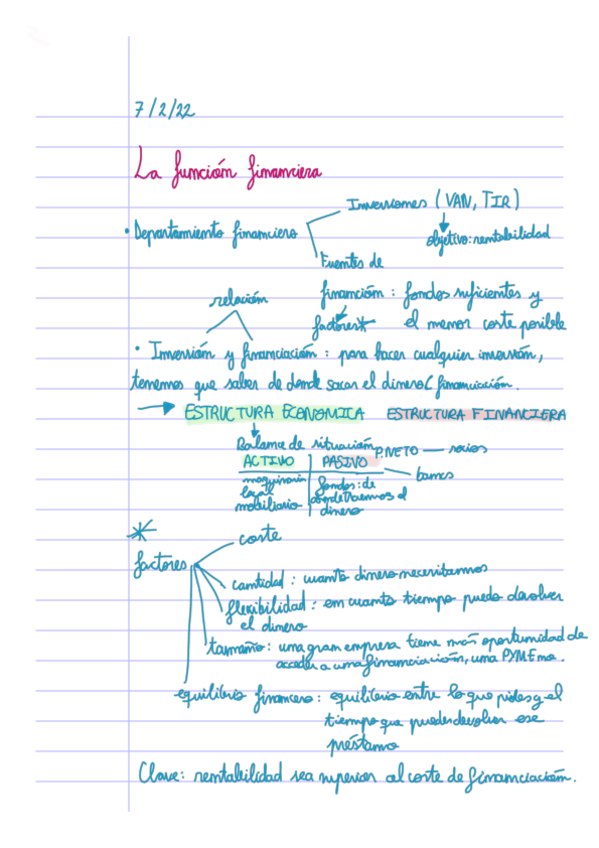 7/2/22
La función financiera
Inversiones (VAN, TIR)
• Departamiento financiero
objetivo: rentabilidad
Fuentes de
financión: fondos suficientes y
relación
factores* el menor coste posible
• Inversión y financiación: para hacer cualquier inversión,
tenemos que saber de donde sacar el dinero (financiación.
→ ESTRUCTURA ECONOMICA ESTRUCTURA FINANCIERA
Balance de situación P.NETO — socios
ACTIVO PASIVO
bancos
maquinaria fondos: de
local donde traemos el
mobiliario dinero
*
factores
coste
cantidad: cuanto dinero necesitamos
flexibilidad: en cuanto tiempo puedo devolver
el dinero
tamaño: una gran empresa tiene más oportunidad de
acceder a una financiación, una PYME no.
equilibrio financero: equilibrio entre lo que pides y el
tiempo que puedes devolver ese
préstamo
Clave: rentabilidad sea superior al coste de financiación.